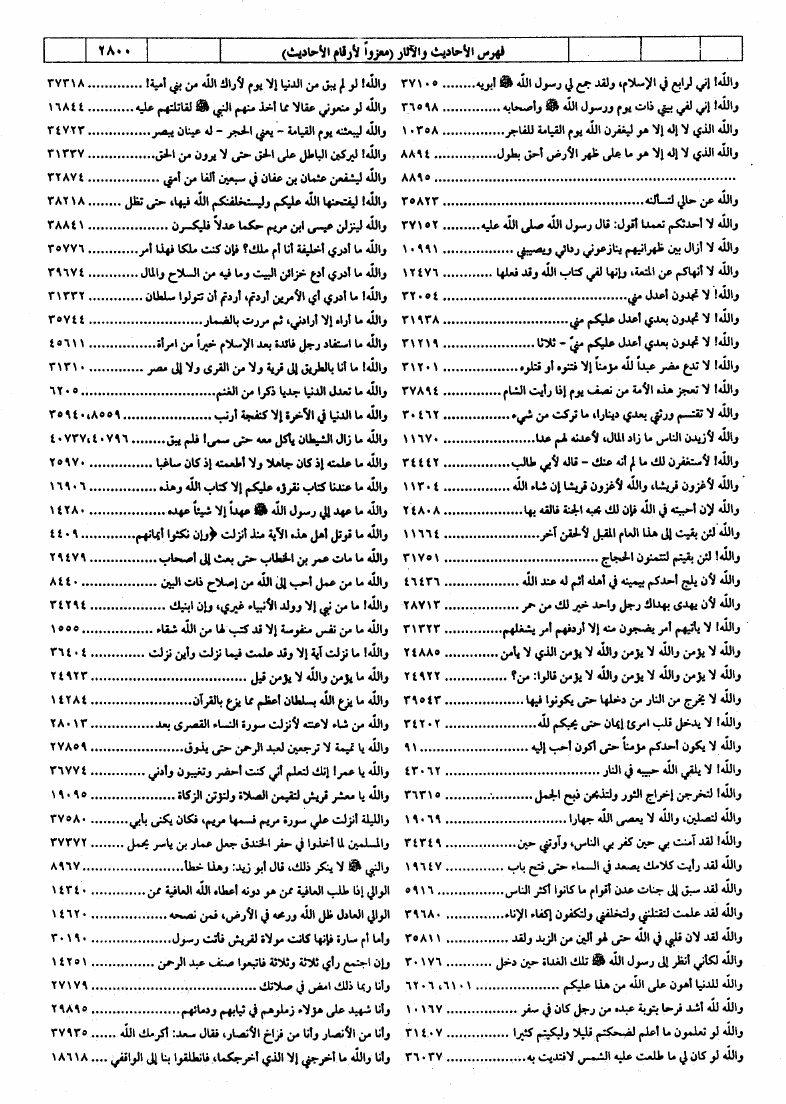 فهرس الأحاديث والآثار (معزواً لأرقام الأحاديث)
٢٨٠٠
والله! إني لرابع في الإسلام، ولقد جمع لي رسول الله ﷺ أبويه........ ٣٧١٠٥
والله! إني لفي بيتي ذات يوم ورسول الله ﷺ وأصحابه ............... ٣٦٥٩٨
والله الذي لا إله إلا هو ليغفرن الله يوم القيامة للفاجر............... ١٠٣٥٨
والله الذي لا إله إلا هو ما على ظهر الأرض أحق بطول............... ٨٨٩٤
............... ٨٨٩٥
والله عن حالي لتسألنه............... ٣٥٨٢٣
والله لا أحدثكم تعمدا أقول: قال رسول الله صلى الله عليه............... ٣٧١٥٢
والله لا أزال بين ظهرانيهم ينازعوني ردائي ويصيبني............... ١٠٩٩١
والله لا أنهاكم عن المتعة، وإنها لفي كتاب الله وقد فعلها ............... ١٢٤٧٦
والله! لا تجدون أعدل مني............... ٣٢٠٥٤
والله! لا تجدون بعدي أعدل عليكم مني ............... ٣١٩٣٨
والله! لا تجدون بعدي أعدل عليكم منيّ – ثلاثا ............... ٣١٢١٩
والله! لا تدع مضر عبداً لله مؤمناً إلا فتنوه أو قتلوه ............... ٣١٢٠١
والله! لا تعجز هذه الأمة من نصف يوم إذا رأيت الشام............... ٣٧٨٩٤
والله لا تقتسم ورثتي بعدي دينارا، ما تركت من شيء............... ٣٠٤٦٢
والله لأزيدن الناس ما زاد المال، لأعدنه لهم عدا............... ١١٦٧٠
والله! لأستغفرن لك ما لم أنه عنك – قاله لأبي طالب............... ٣٤٤٤٢
والله لأغزون قريشا، والله لأغزون قريشا إن شاء الله ............... ١١٣٠٤
والله لإن أحببته في الله فإن لك بحبه الجنة فالقه بها............... ٢٤٨٠٨
والله لئن بقيت إلى هذا العام المقبل لألحقن آخر............... ١١٦٦٤
والله! لئن بقيتم لتتمنون الحجاج ............... ٣١٧٥١
والله لأن يلج أحدكم بيمينه في أهله أثم له عند الله ............... ٤٦٤٣٦
والله لأن يهدى بهداك رجل واحد خير لك من حمر ............... ٢٨٧١٣
والله! لا يأتيهم أمر يضجون منه إلا أردفهم أمر يشغلهم............... ٣١٣٢٣
والله لا يؤمن والله لا يؤمن والله لا يؤمن الذي لا يأمن............... ٢٤٨٨٥
والله لا يؤمن والله لا يؤمن والله لا يؤمن قالوا: من؟ ............... ٢٤٩٢٢
والله لا يخرج من النار من دخلها حتى يكونوا فيها ............... ٣٩٥٤٣
والله! لا يدخل قلب امرئ إيمان حتى يحبكم لله............... ٣٤٢٠٢
والله لا يكون أحدكم مؤمناً حتى أكون أحب إليه ............... ٩١
والله! لا يلقي الله حبيبه في النار ............... ٤٣٠٦٢
والله! لتخرجن إخراج الثور ولتذبحن ذبح الجمل ............... ٣٦٣١٥
والله لتصلين، والله لا يعصى الله جهارا ............... ١٩٠٦٩
والله! لقد آمنت بي حين كفر بي الناس، وآوتني حين............... ٣٤٣٤٩
والله لقد رأيت كلامك يصعد في السماء حتى فتح باب ............... ١٩٦٤٧
والله لقد سبق إلى جنات عدن أقوام ما كانوا أكثر الناس............... ٥٩١٦
والله لقد علمت لتقتلني ولتخلفني ولتكفون إكفاء الإناء............... ٣٩٦٨٠
والله لقد لان قلبي في الله حتى لهو ألين من الزبد ولقد ............... ٣٥٨١١
والله لكأني أنظر إلى رسول الله ﷺ تلك الغداة حين دخل ............... ٣٠١٧٦
والله للدنيا أهون على الله من هذا عليكم ............... ٦١٠١، ٦٢٠٦
والله لله أشد فرحا بتوبة عبده من رجل كان في سفر ............... ١٠١٦٧
والله لو تعلمون ما أعلم لضحكتم قليلا ولبكيتم كثيرا............... ٣١٤٠٧
والله لو كان لي ما طلعت عليه الشمس لافتديت به............... ٣٦٠٣٧
والله! لو لم يبق من الدنيا إلا يوم لأراك الله من بني أمية!............... ٣٧٣١٨
والله لو منعوني عقالا مما أخذ منهم النبي ﷺ لقاتلتهم عليه............... ١٦٨٤٤
والله ليبعثنه يوم القيامة – يعني الحجر – له عينان يبصر ............... ٣٤٧٢٣
والله! ليركبن الباطل على الحق حتى لا يرون من الحق............... ٣١٣٣٧
والله ليشفعن عثمان بن عفان في سبعين ألفا من أمتي ............... ٣٢٨٧٤
والله! ليفتحنها الله عليكم وليستخلفنكم الله فيها، حتى تظل ........ ٣٨٢١٨
والله لينزلن عيسى ابن مريم حكما عدلاً فليكسرن ............... ٣٨٨٤١
والله ما أدري أخليفة أنا أم ملك؟ فإن كنت ملكا فهذا أمر............... ٣٥٧٧٦
والله ما أدري أدع خزائن البيت وما فيه من السلاح والمال............... ٣٩٦٧٤
والله! ما أدري أي الأمرين أردتم، أردتم أن تتولوا سلطان ............... ٣١٣٣٢
والله! ما أراه إلا أرادني، ثم مررت بالضمار............... ٣٥٧٤٤
والله ما استفاد رجل فائدة بعد الإسلام خيراً من امرأة............... ٤٥٦١١
والله! ما أنا بالطريق إلى قرية ولا من القرى ولا إلى مصر ............... ٣١٣١٠
والله ما تعدل الدنيا جديا ذكرا من الغنم............... ٦٢٠٥
والله ما الدنيا في الآخرة إلا كنفجة أرنب ............... ٨٥٥٩، ٣٥٩٤٠
والله ما زال الشيطان يأكل معه حتى سمى! فلم يبق........ ٤٠٧٩٦، ٤٠٧٣٧
والله ما علمته إذ كان جاهلا ولا أطعمته إذ كان ساغبا ............... ٢٥٩٧٠
والله ما عندنا كتاب نقرؤه عليكم إلا كتاب الله وهذه ............... ١٦٩٠٦
والله ما عهد إلي رسول الله ﷺ عهداً إلا شيئاً عهده............... ١٤٢٨٠
والله ما قوتل أهل هذه الآية منذ أنزلت ﴿وإن نكثوا أيمانهم........ ٤٤٠٩
والله! ما مات عمر بن الخطاب حتى بعث إلى أصحاب ............... ٢٩٤٧٩
والله ما من عمل أحب إلى الله من إصلاح ذات البين ............... ٨٤٤٠
والله! ما من نبي إلا وولد الأنبياء غيري، وإن ابنيك ............... ٣٤٢٩٤
والله ما من نفس منفوسة إلا قد كتب لها من الله شقاء ............... ١٥٥٥
والله! ما نزلت آية إلا وقد علمت فيما نزلت وأين نزلت ............... ٣٦٤٠٤
والله ما يؤمن والله لا يؤمن قيل............... ٢٤٩٢٣
والله ما يزع الله بسلطان أعظم مما يزع بالقرآن............... ١٤٢٨٤
والله من شاء لاعنته لأنزلت سورة النساء القصرى بعد ............... ٢٨٠١٣
والله يا تميمة لا ترجعين لعبد الرحمن حتى يذوق............... ٢٧٨٥٩
والله يا عمر! إنك لتعلم أني كنت أحضر وتغيبون وأدني ............... ٣٦٧٧٤
والله يا معشر قريش لتقيمن الصلاة ولتؤتن الزكاة............... ١٩٠٩٥
والليلة أنزلت علي سورة مريم فسمها مريم، فكان يكنى بأبي........ ٣٧٥٨٠
والمسلمين لما أخذوا في حفر الخندق جعل عمار بن ياسر يحمل ........ ٣٧٣٧٢
والنبي ﷺ لا ينكر ذلك، قال أبو زيد: وهذا خطأ............... ٨٩٦٧
الوالي إذا طلب العافية ممن هو دونه أعطاه الله العافية ممن............... ١٤٣٤٠
الوالي العادل ظل الله ورمحه في الأرض، فمن نصحه ............... ١٤٦٢٠
وأما أم سارة فإنها كانت مولاة لقريش فأتت رسول............... ٣٠١٩٠
وإن اجتمع رأي ثلاثة وثلاثة فاتبعوا صنف عبد الرحمن ............... ١٤٢٥١
وأنا ربما ذلك امض في صلاتك ............... ٢٧١٧٩
وأنا شهيد على هؤلاء زملوهم في ثيابهم ودمائهم............... ٢٩٨٩٥
وأنا من الأنصار وأنا من فراخ الأنصار، فقال سعد: أكرمك الله ........ ٣٧٩٣٥
وأنا والله ما أخرجني إلا الذي أخرجكما، فانطلقوا بنا إلى الواقفي .... ١٨٦١٨